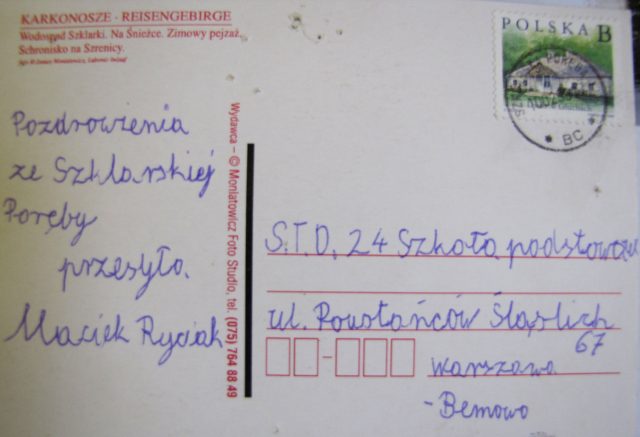 KARKONOSZE · REISENGEBIRGE
Wodospad Szklarki. Na Śnieżce. Zimowy pejzaż.
Schronisko na Szrenicy.
POLSKA B
BC
Pozdrowienia
ze Szklarskiej
Poręby
przesyła
Maciek Ryciak
Wydawca – © Moniatowicz Foto Studio, tel. (075) 764 88 49
S.T.D. 24 Szkoła podstawowa
ul. Powstańców Śląskich
67
Warszawa
- Bemowo